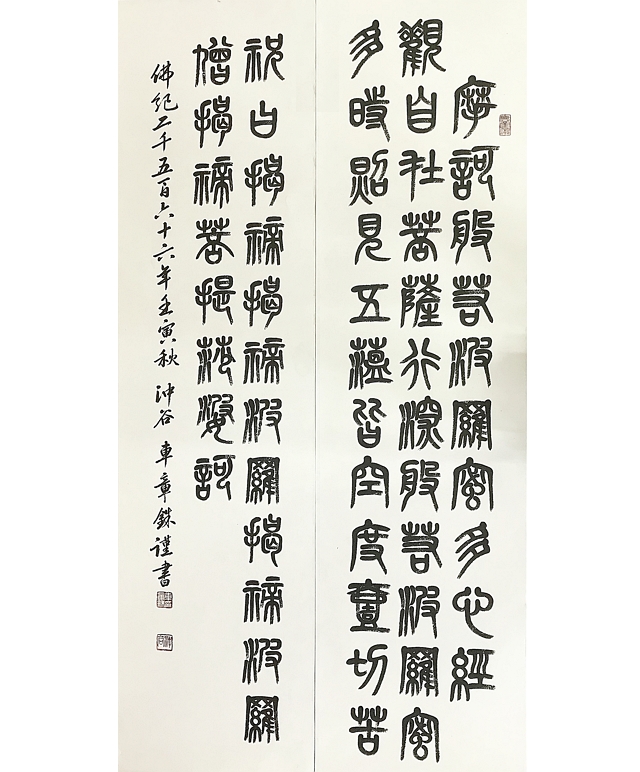 摩訶般若波羅蜜多心經
觀自在菩薩行深般若波羅蜜
多時照見五蘊皆空度壹切苦
祝曰揭禘揭禘波羅揭禘波羅
僧揭禘菩提莎婆訶
佛紀二千五百六十六年壬寅秋 沖谷 車章銖謹書